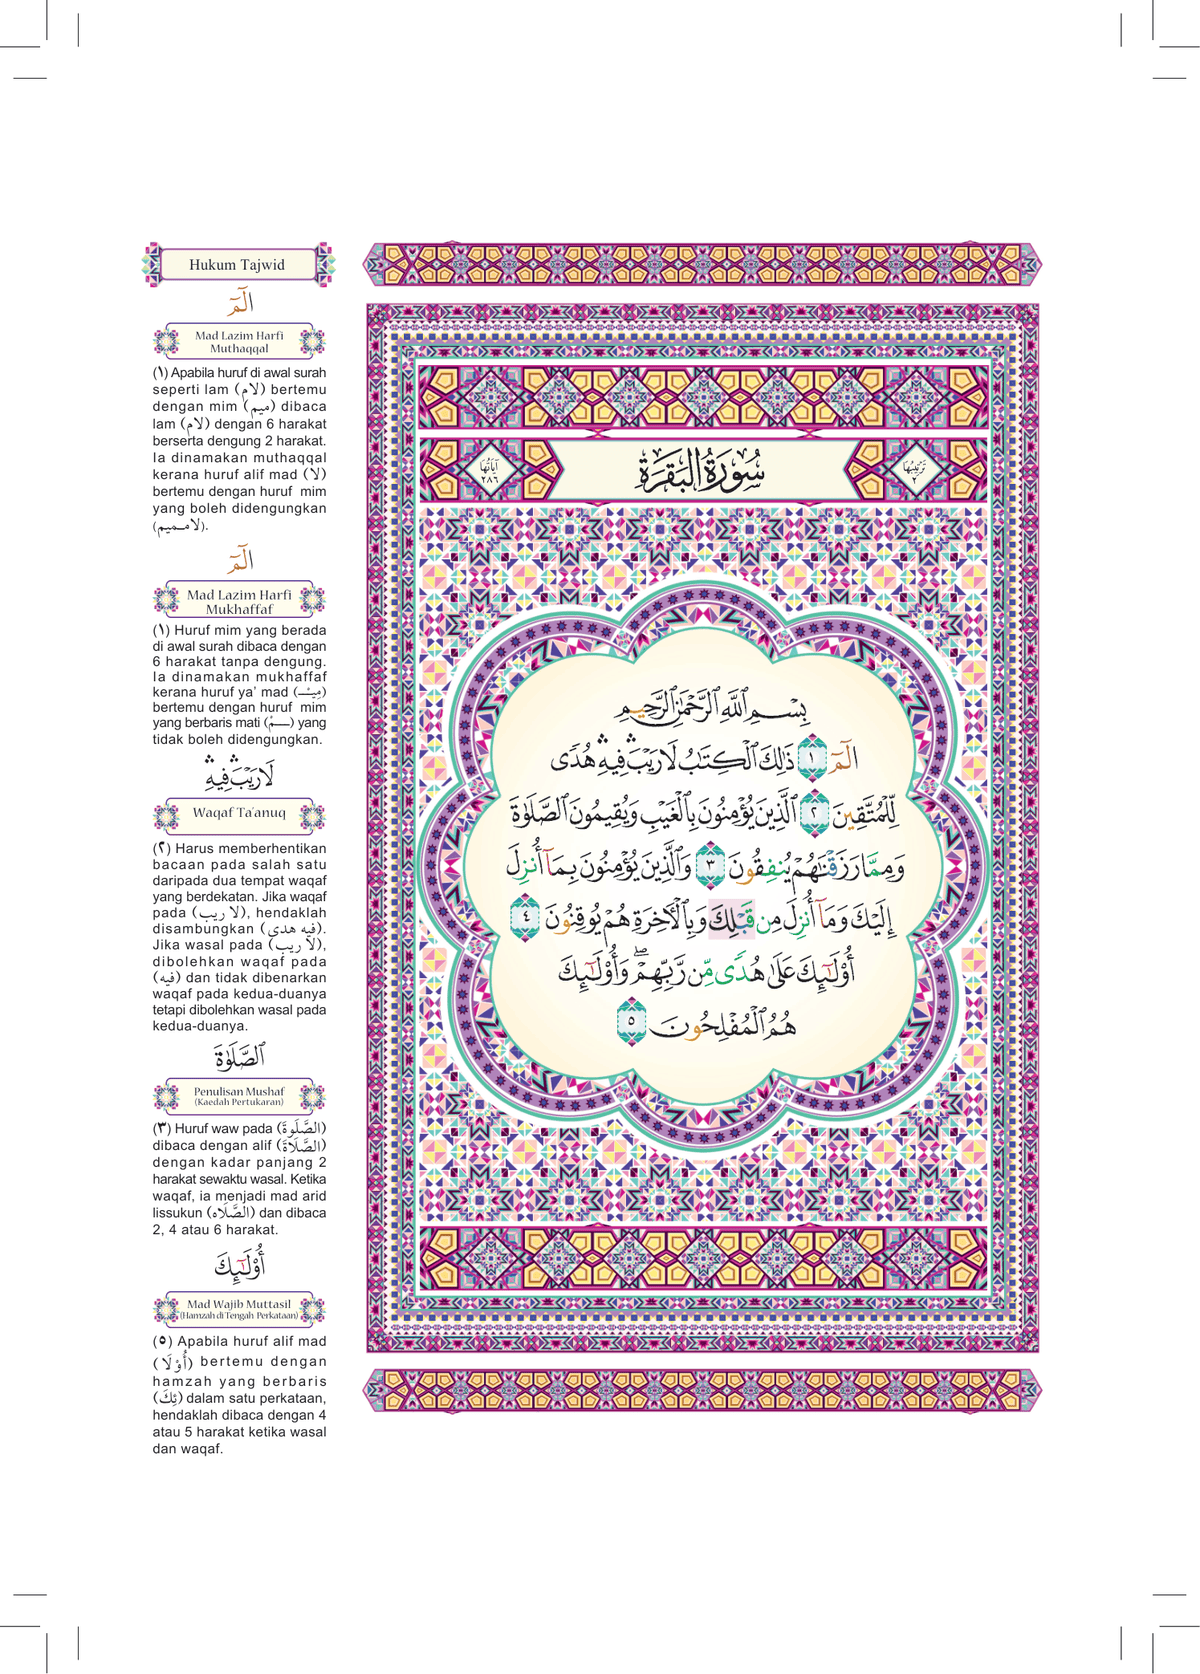 Hukum Tajwid
الٓمٓ
Mad Lazim Harfi
Muthaqqal
(١) Apabila huruf di awal surah
seperti lam (لام) bertemu
dengan mim (ميم) dibaca
lam (لام) dengan 6 harakat
berserta dengung 2 harakat.
Ia dinamakan muthaqqal
kerana huruf alif mad (لا)
bertemu dengan huruf mim
yang boleh didengungkan
(لامـميم).
الٓمٓ
Mad Lazim Harfi
Mukhaffaf
(١) Huruf mim yang berada
di awal surah dibaca dengan
6 harakat tanpa dengung.
Ia dinamakan mukhaffaf
kerana huruf ya’ mad (مِيـ)
bertemu dengan huruf mim
yang berbaris mati (ـمْ) yang
tidak boleh didengungkan.
لَا رَيْبَ ۛ فِيهِ ۛ
Waqaf Ta'anuq
(٢) Harus memberhentikan
bacaan pada salah satu
daripada dua tempat waqaf
yang berdekatan. Jika waqaf
pada (لا ريب), hendaklah
disambungkan (فيه هدى).
Jika wasal pada (لا ريب),
dibolehkan waqaf pada
(فيه) dan tidak dibenarkan
waqaf pada kedua-duanya
tetapi dibolehkan wasal pada
kedua-duanya.
ٱلصَّلَوٰةَ
Penulisan Mushaf
(Kaedah Pertukaran)
(٣) Huruf waw pada (الصَّلَوةَ)
dibaca dengan alif (الصَّلَاةَ)
dengan kadar panjang 2
harakat sewaktu wasal. Ketika
waqaf, ia menjadi mad arid
lissukun (الصَّلَاه) dan dibaca
2, 4 atau 6 harakat.
أُو۟لَـٰٓئِكَ
Mad Wajib Muttasil
(Hamzah di Tengah Perkataan)
(٥) Apabila huruf alif mad
(أُوْلَا) bertemu dengan
hamzah yang berbaris
(ئِكَ) dalam satu perkataan,
hendaklah dibaca dengan 4
atau 5 harakat ketika wasal
dan waqaf.
تَرْتِيبُهَا
٢
سُورَةُ البَقَرَةِ
آيَاتُهَا
٢٨٦
بِسْمِ ٱللَّهِ ٱلرَّحْمَـٰنِ ٱلرَّحِيمِ
الٓمٓ ١ ذَٰلِكَ ٱلْكِتَـٰبُ لَا رَيْبَ ۛ فِيهِ ۛ هُدًى
لِّلْمُتَّقِينَ ٢ ٱلَّذِينَ يُؤْمِنُونَ بِٱلْغَيْبِ وَيُقِيمُونَ ٱلصَّلَوٰةَ
وَمِمَّا رَزَقْنَـٰهُمْ يُنفِقُونَ ٣ وَٱلَّذِينَ يُؤْمِنُونَ بِمَآ أُنزِلَ
إِلَيْكَ وَمَآ أُنزِلَ مِن قَبْلِكَ وَبِٱلْـَٔاخِرَةِ هُمْ يُوقِنُونَ ٤
أُو۟لَـٰٓئِكَ عَلَىٰ هُدًى مِّن رَّبِّهِمْ ۖ وَأُو۟لَـٰٓئِكَ
هُمُ ٱلْمُفْلِحُونَ ٥